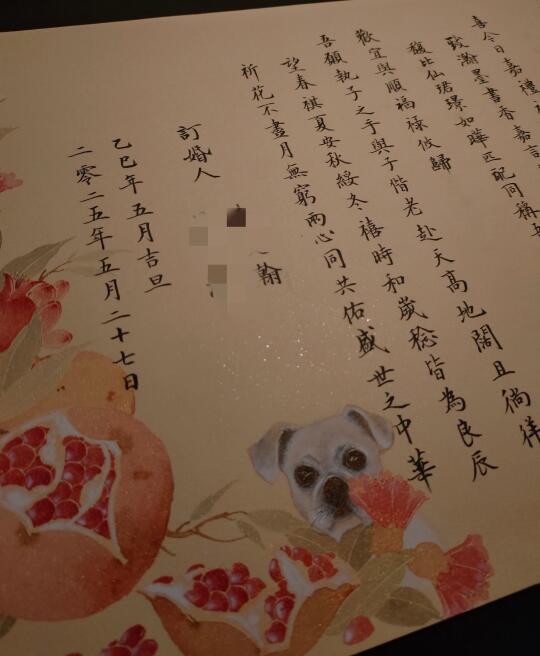 喜今日嘉禮
致瀚墨書香嘉言
馥比仙琚璟如曄匹配同稱
歡宜與順福祿攸歸
吾願執子之手與子偕老赴天高地闊且徜徉
望春祺夏安秋綏冬禧時和歲稔皆為良辰
祈花不盡月無窮兩心同共佑盛世之中華
訂婚人
翰
乙巳年五月吉旦
二零二五年五月二十七日